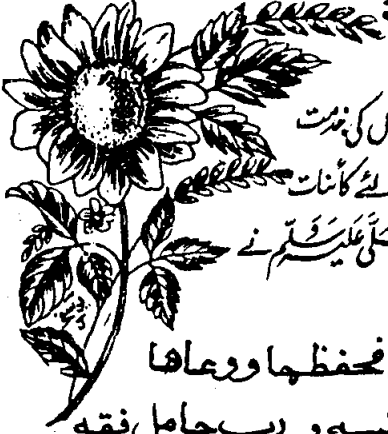 کی خدمت
لئے کائنات
صَلَّی عَلَیْہِ وَسَلَّم نے
فحفظها ووعاها
رب حامل فقه